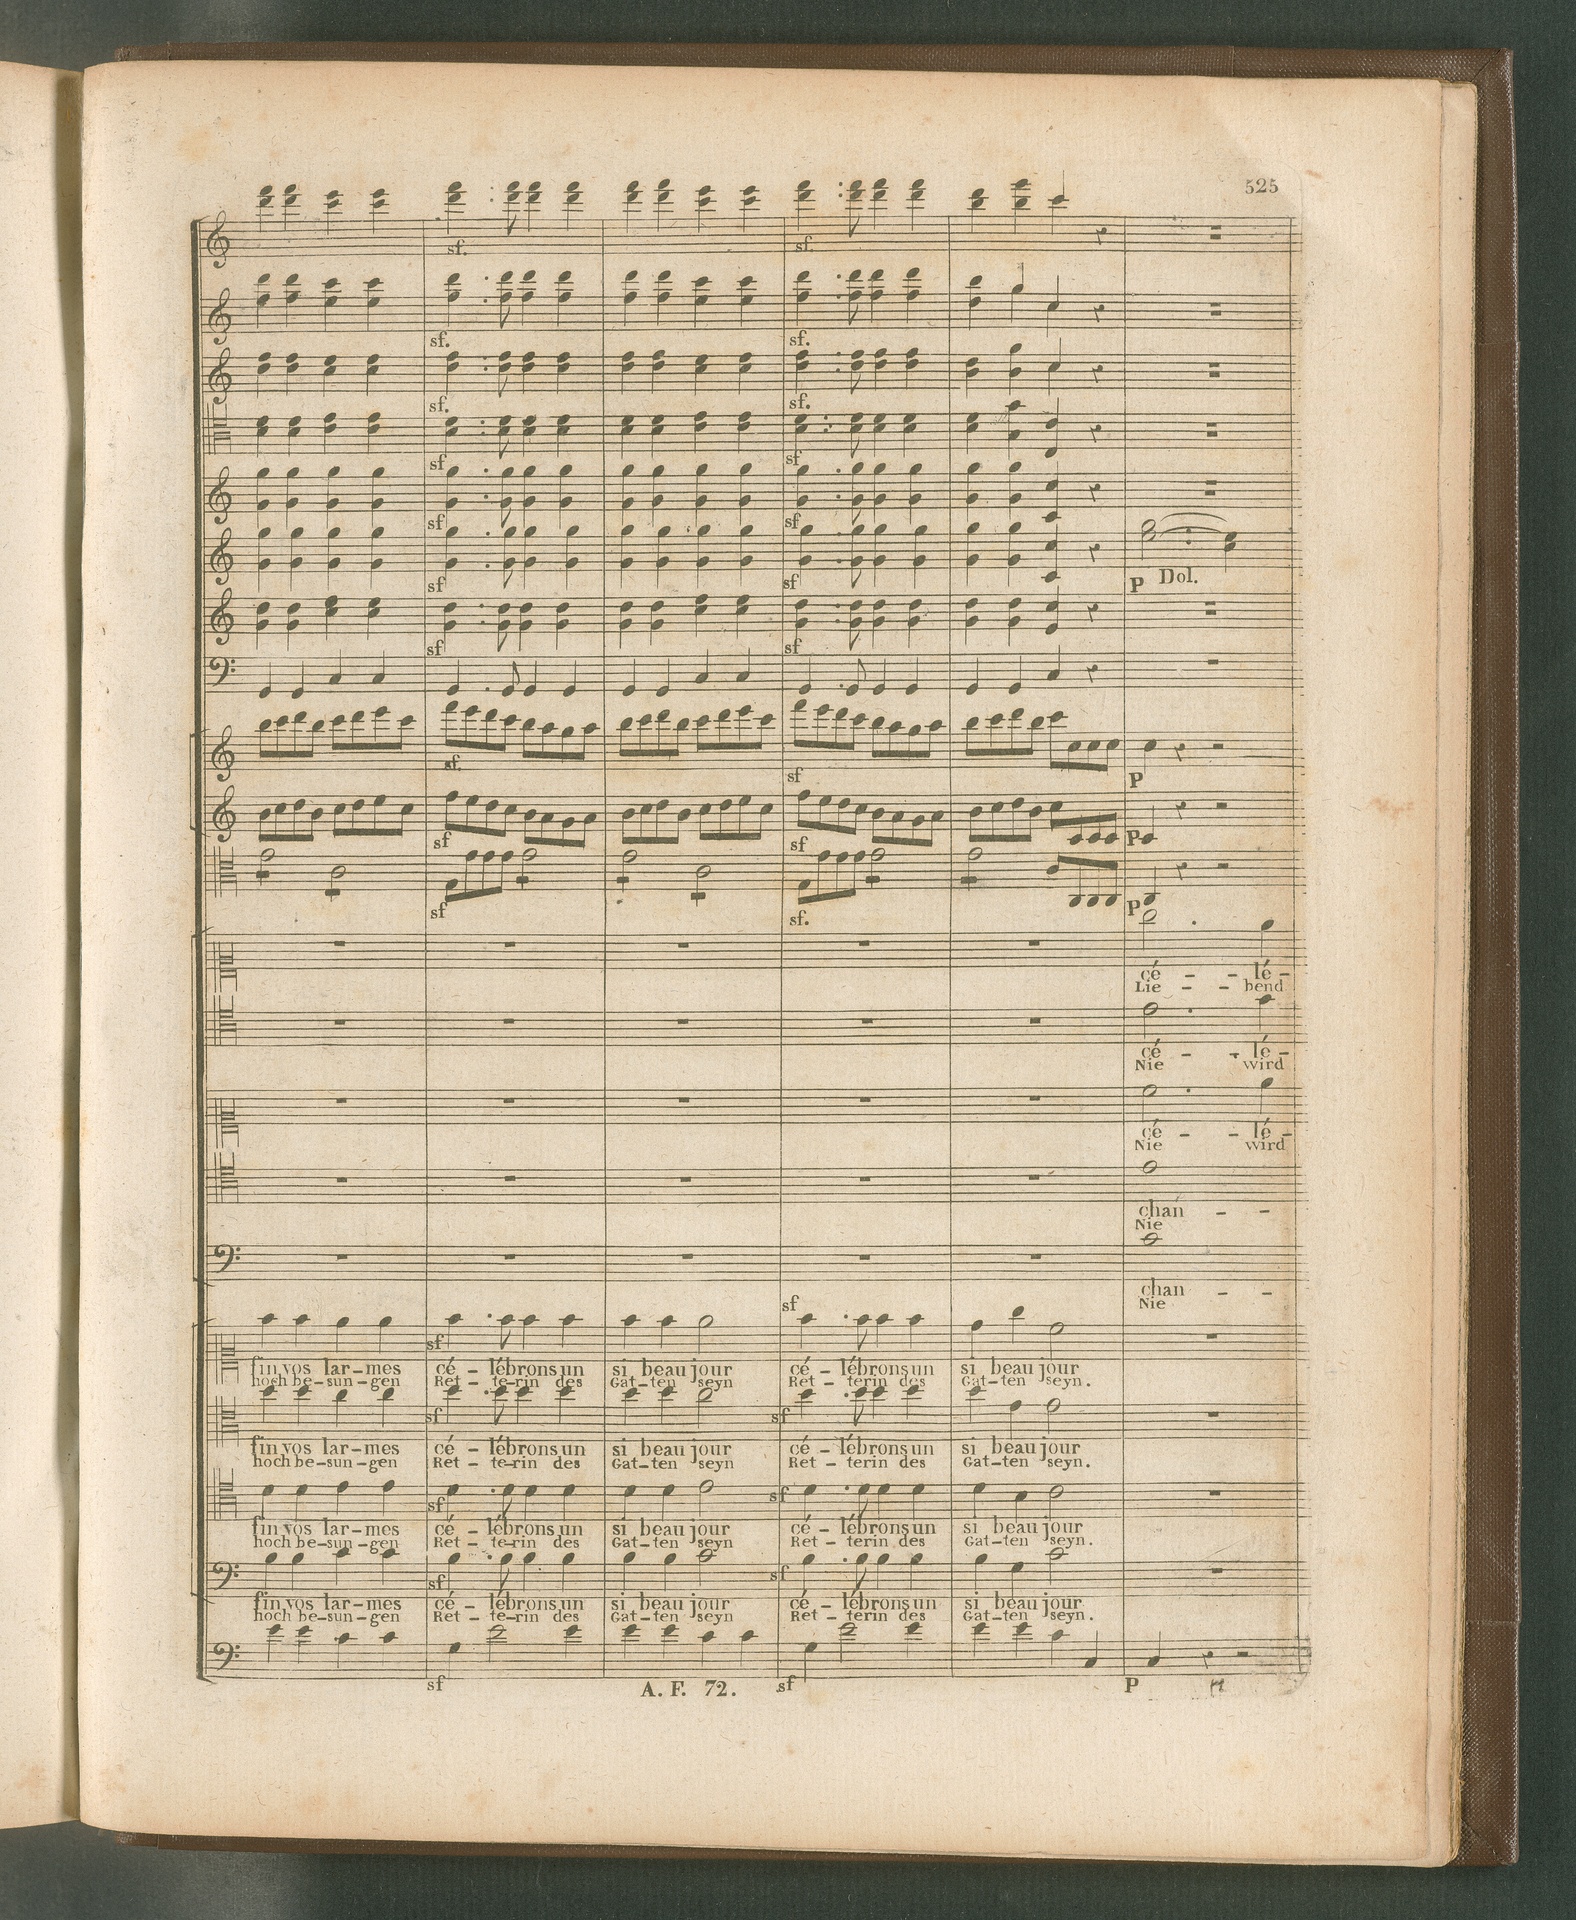 525
sf. sf.
sf. sf.
sf. sf.
sf sf
sf sf
P Dol.
sf sf
sf sf
sf. sf P
sf sf P
sf sf. P
cé - - lé -
Lie - - bend
cé - - lé -
Nie wird
cé - - lé -
Nie wird
chan - -
Nie
chan - -
Nie
sf
sf
fin vos lar-mes cé - lébrons un si beau jour cé - lébrons un si beau jour
hoch be-sun-gen Ret - te-rin des Gat-ten seyn Ret - terin des Gat-ten seyn.
sf sf
fin vos lar-mes cé - lébrons un si beau jour cé - lébrons un si beau jour
hoch be-sun-gen Ret - te-rin des Gat-ten seyn Ret - terin des Gat-ten seyn.
sf sf
fin vos lar-mes cé - lébrons un si beau jour cé - lébrons un si beau jour
hoch be-sun-gen Ret - te-rin des Gat-ten seyn Ret - terin des Gat-ten seyn.
sf sf
fin vos lar-mes cé - lébrons un si beau jour cé - lébrons un si beau jour
hoch be-sun-gen Ret - te-rin des Gat-ten seyn Ret - terin des Gat-ten seyn.
sf A. F. 72. sf P